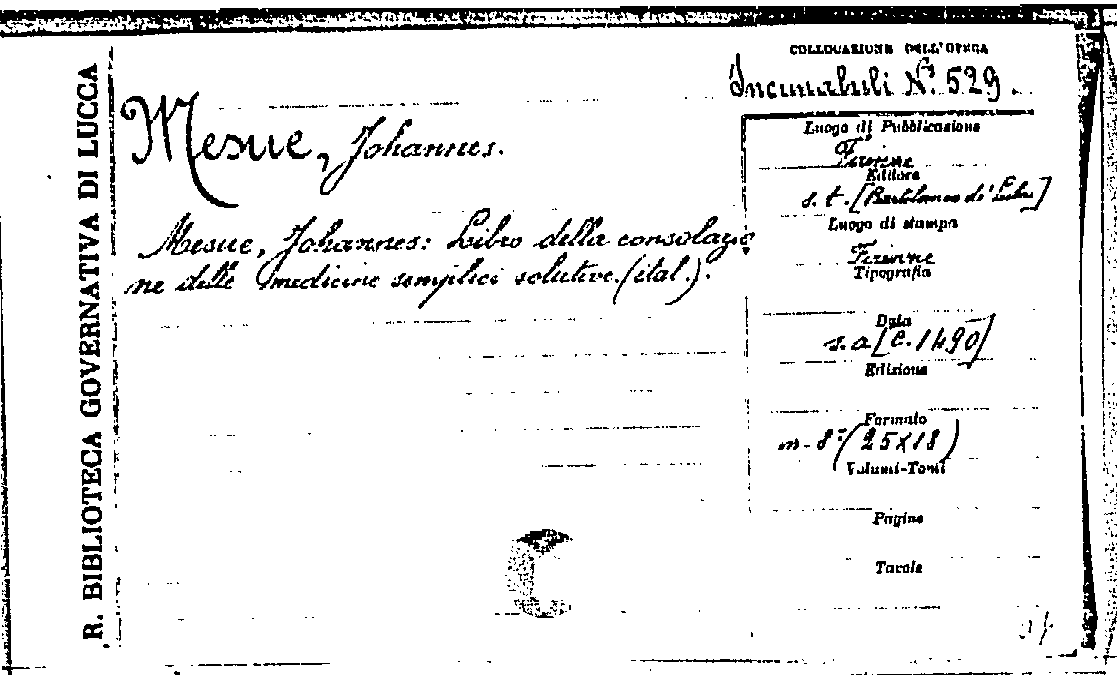 R. BIBLIOTECA GOVERNATIVA DI LUCCA
COLLOCAZIONE DELL'OPERA
Incunabuli N° 529.
Mesue, Johannes.
Mesue, Johannes: Libro della consolazio
ne delle medicine semplici solutive. (ital.).
Luogo di Pubblicazione
Firenze
Editore
s. t. [Bartolomeo di Libri]
Luogo di stampa
Firenze
Tipografia
Data
s. a [c. 1490]
Edizione
Formato
in-8° (25X18)
Volumi-Tomi
Pagine
Tavole
C